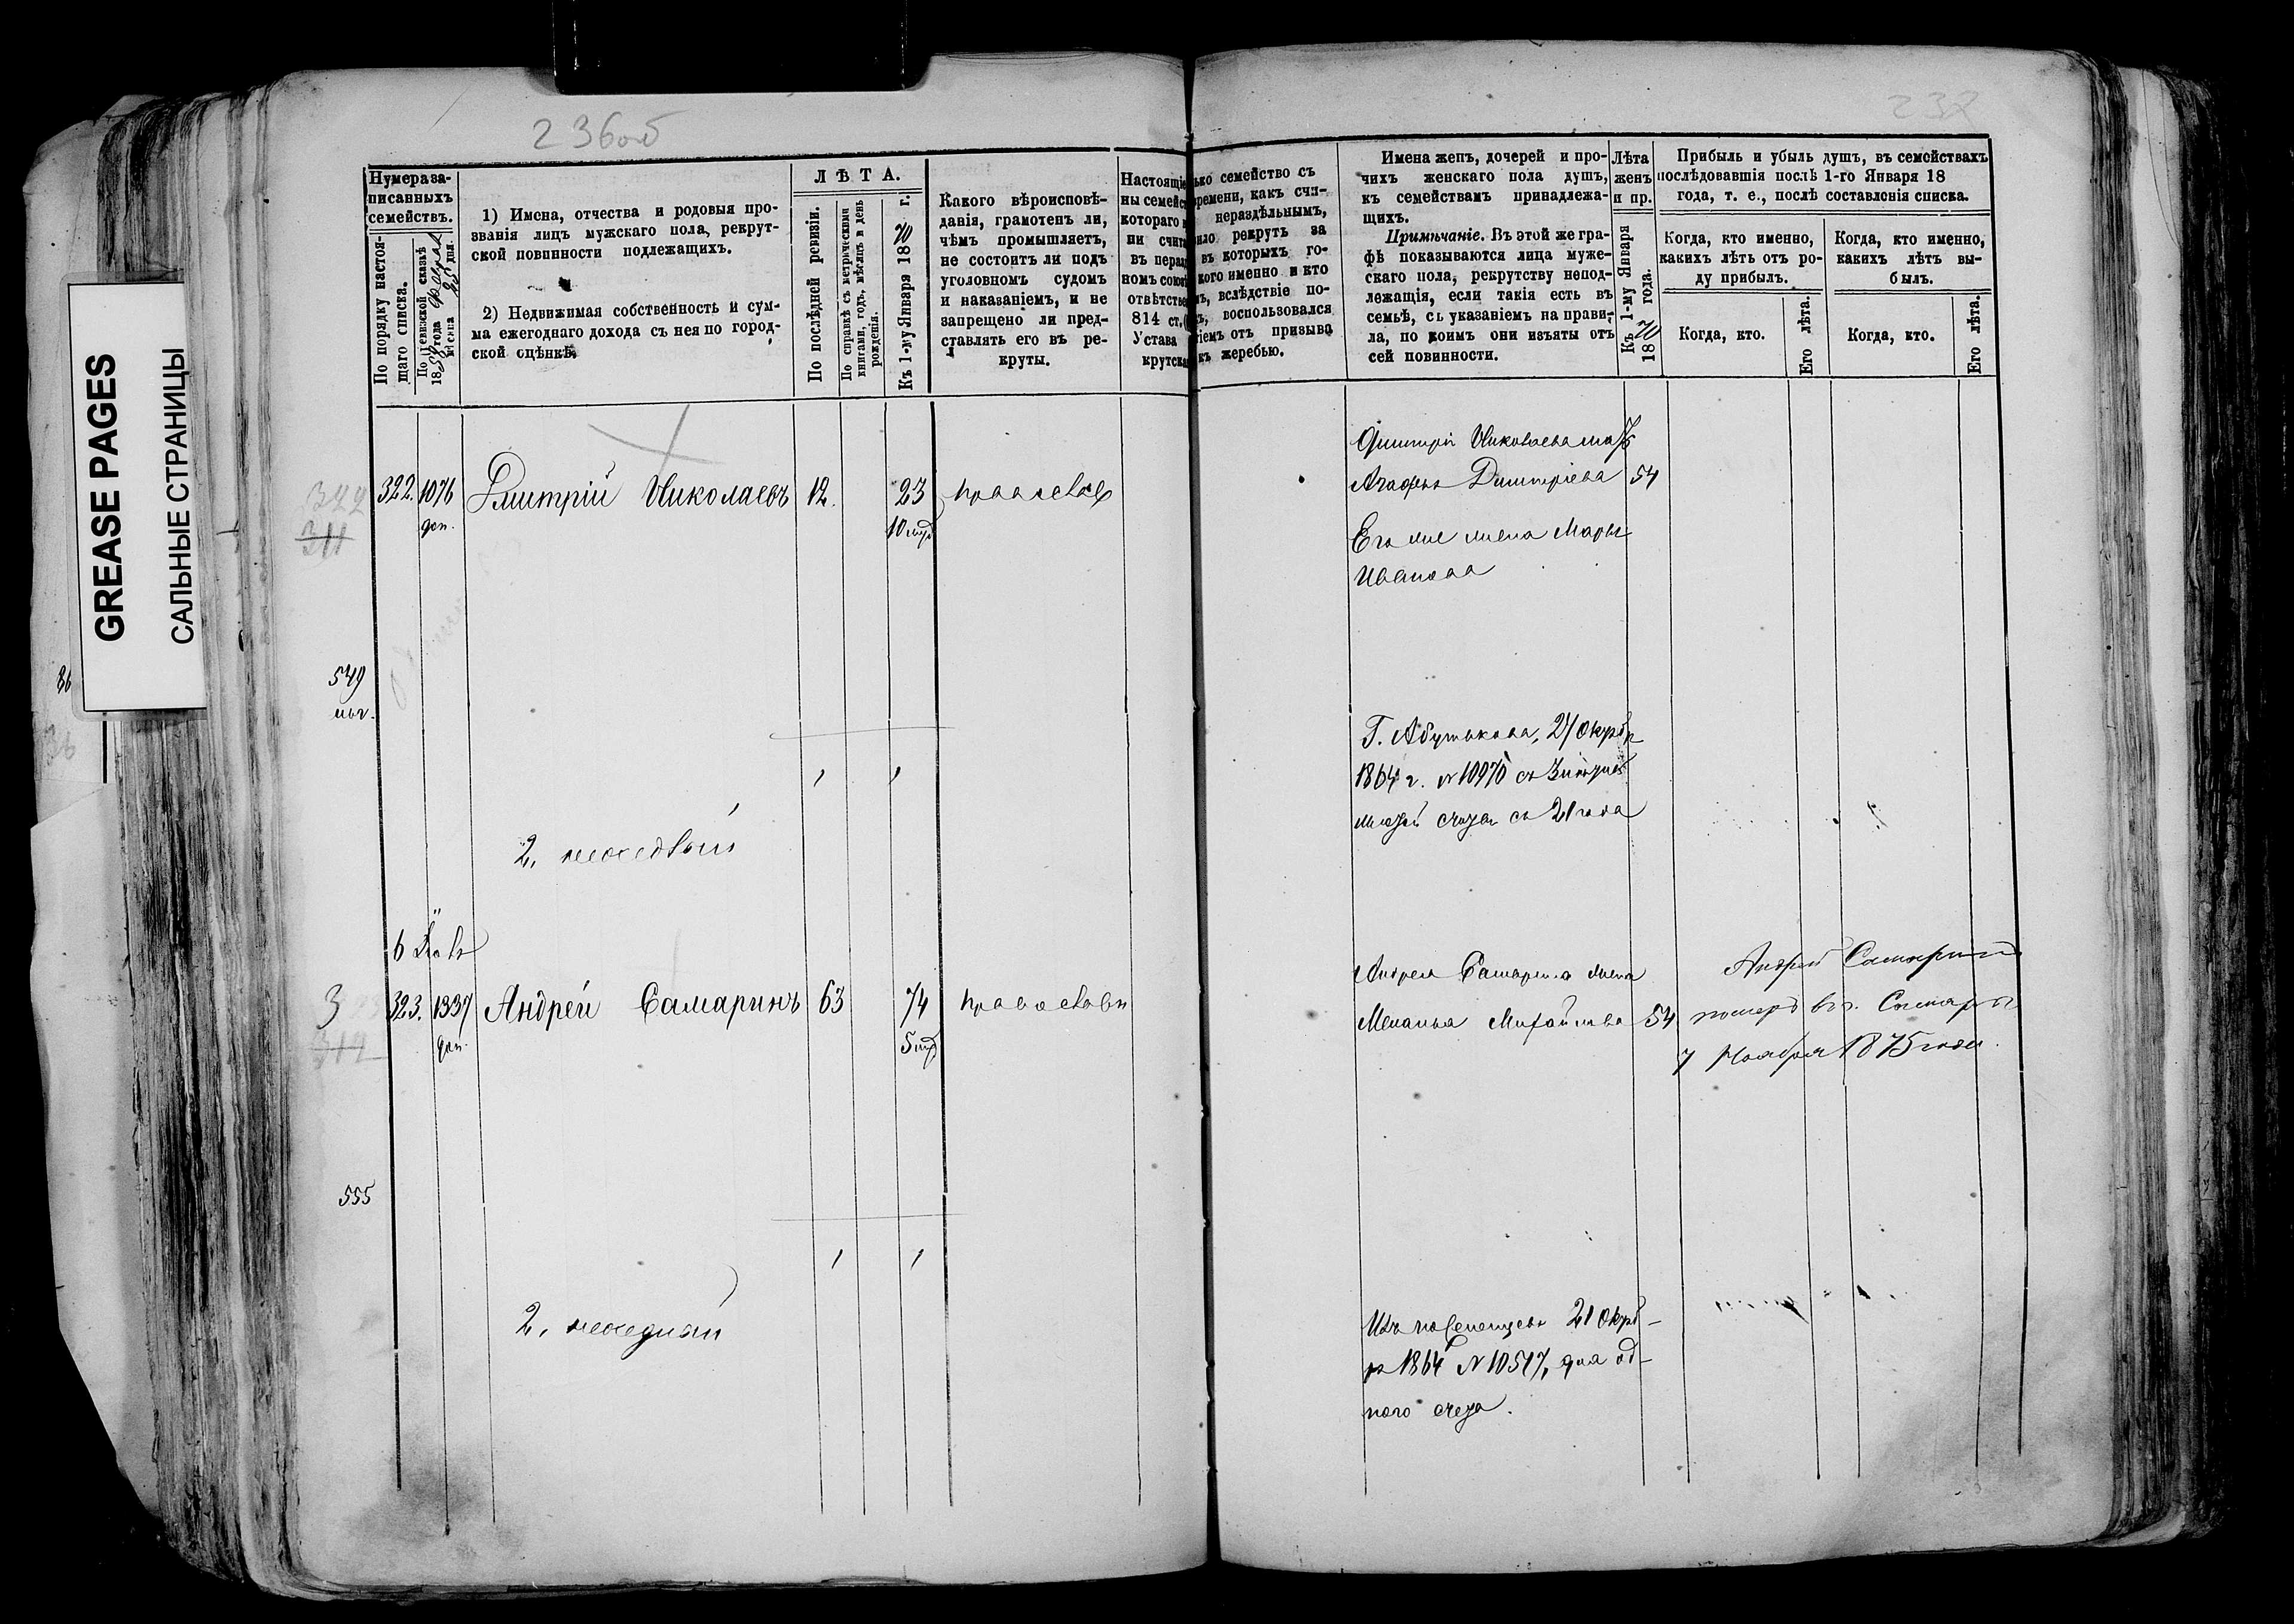 236об
237
GREASE PAGES
САЛЬНЫЕ СТРАНИЦЫ
Нумера за-
писанныхъ
семействъ.
По порядку настоя-
щаго списка.
По ревизской сказкѣ
1858 года
мѣсяца дня.
1) Имена, отчества и родовыя про-
званія лицъ мужскаго пола, рекрут-
ской повинности подлежащихъ.
2) Недвижимая собственность и сум-
ма ежегоднаго дохода съ нея по город-
ской оцѣнкѣ.
ЛѢТА.
По послѣдней ревизіи.
По справкѣ съ метрическими
книгами, годъ, мѣсяцъ и день
рожденія.
Къ 1-му Января 1870 г.
Какого вѣроисповѣ-
данія, грамотенъ ли,
чѣмъ промышляетъ,
не состоитъ ли подъ
уголовномъ судомъ
и наказаніемъ, и не
запрещено ли пред-
ставлять его въ ре-
круты.
Настоящіе
ны семейст
котораго
ни счита
въ нераз
номъ союз
отвѣтстве
814 ст.
Устава
крутска
ько семейство съ
ремени, какъ счи-
нераздѣльнымъ,
ило рекрутъ за
въ которыхъ го-
кого именно и кто
ъ, вслѣдствіе по-
ъ, воспользовался
іемъ отъ призыва
къ жеребью.
Имена женъ, дочерей и про-
чихъ женскаго пола душъ,
къ семействамъ принадлежа-
щихъ.
Примѣчаніе. Въ этой же гра-
фѣ показываются лица муже-
скаго пола, рекрутству непод-
лежащія, если такія есть въ
семьѣ, съ указаніемъ на прави-
ла, по коимъ они изъяты отъ
сей повинности.
Лѣта
женъ
и пр.
Къ 1-му Января
1870 года.
Прибыль и убыль душъ, въ семействахъ
послѣдовавшія послѣ 1-го Января 18
года, т. е., послѣ составленія списка.
Когда, кто именно,
какихъ лѣтъ отъ ро-
ду прибылъ.
Когда, кто именно,
какихъ лѣтъ вы-
былъ.
Когда, кто.
Его лѣта.
Когда, кто.
Его лѣта.
322
311
322. 1076 Дмитрій Николаевъ 12. 23 православ
доп. 10 мѣс
Дмитрія Николаева мать
Агафья Димитріева 54
Его же жена Марья
Иванова
549
1 1
2. посадскій
Г. Абутькова, 27 Октяб
1864 г. № 10970 съ
съ 21 года
3
323. 1337 Андрей Самаринъ 63 74 православн
доп. 5 мѣс
Андрея Самарина жена
Меланья Михайлова 54
Андрей Самаринъ
померъ въ г. Самарѣ
7 Ноября 1875 года.
555
1 1
2.
21 Октяб-
ря 1864 № 10517, для од-
ного счета.